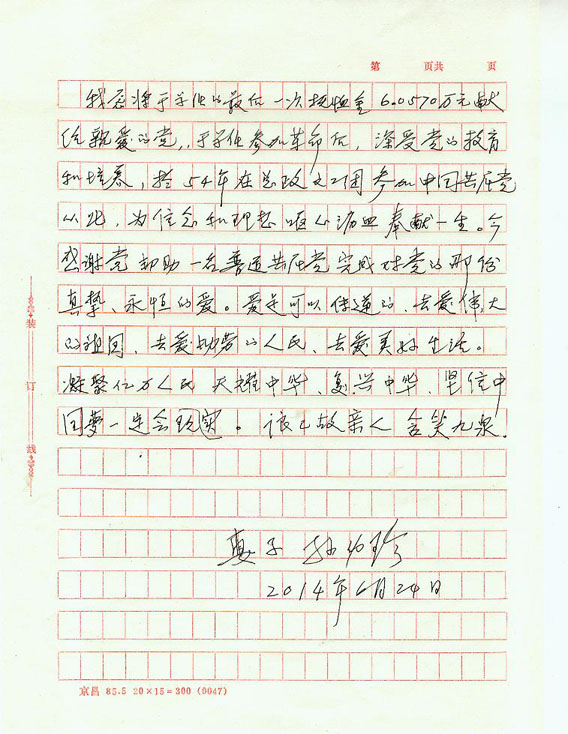 第 页共 页
我愿将于学仕的最后一次抚恤金6.0570万元献
给亲爱的党,于学仕参加革命后,深受党的教育
和培养,于54年在总政文工团参加中国共产党
从此,为信念和理想呕心沥血奉献一生。今
感谢党帮助一名普通共产党完成对党的那份
真挚、永恒的爱。爱是可以传递的、去爱伟大
的祖国、去爱勤劳的人民、去爱美好生活。
凝聚亿万人民 大 中华、复兴中华、坚信中
国夢一定会现实。让已故亲人含笑九泉.
妻子 孙
2014年6月24日
装
订
线
京昌 85.5 20×15=300 (0047)